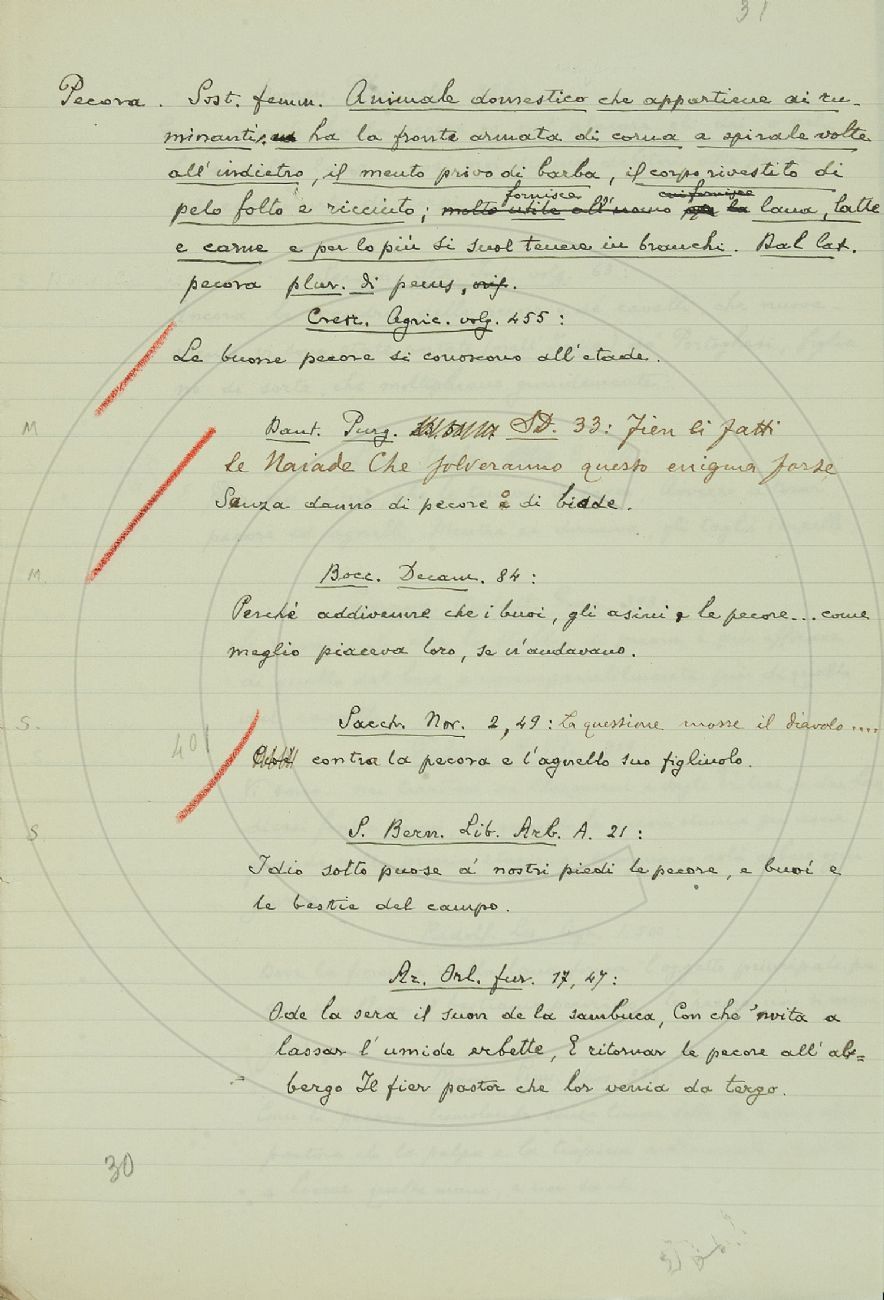 31
Pecora. Sost. femm. Animale domestico che appartiene ai ru-
minanti; ha la fronte armata di corna a spirale volte
all'indietro, il mento privo di barba, il corpo rivestito di
fornisce
pelo folto e ricciuto; molto utile all'uomo lana, latte
e carne e per lo più si suol tenere in branchi. Dal lat.
pecora plur. di pecus, orig.
Cresc. Agric. volg. 455:
Le buone pecore si conoscono all'etade.
M Dant. Purg. 33: Fien li fatti
le Naiade Che solveranno questo enigma forte
Senza danno di pecore o di biade.
M. Bocc. Decam. 84:
Perché addivenne che i buoi, gli asini, le pecore... come
meglio piaceva loro, se n'andavano.
S. Sacch. Nov. 2, 49: la questione mosse il diavolo....
401
contra la pecora e l'agnello suo figliuolo.
S. S. Bern. Lib. Arb. A. 21:
Idio sotto puose a' nostri piedi le pecore, e buoi e
le bestie del campo.
Ar. Orl. fur. 17, 47:
Ode la sera il suon de la sambuca, Con che 'nvita a
lassar l'umide erbette, E ritornar le pecore all'al-
bergo Il fier pastor che lor venia da tergo.
30